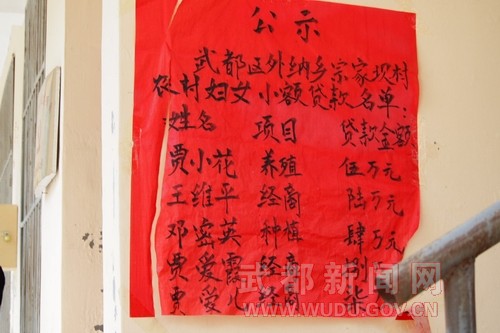 公示
武都区外纳乡宗家坝村
农村妇女小额贷款名单:
姓名 项目 贷款金额
贾小花 养殖 伍万元
王维平 经商 陆万元
邓密英 种植 肆万元
贾爱霞 经商 捌
贾爱儿 经商
武都新闻网
WWW.WUDU.GOV.CN